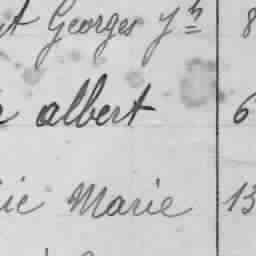 Georges Jh 8
albert 6
Marie 13